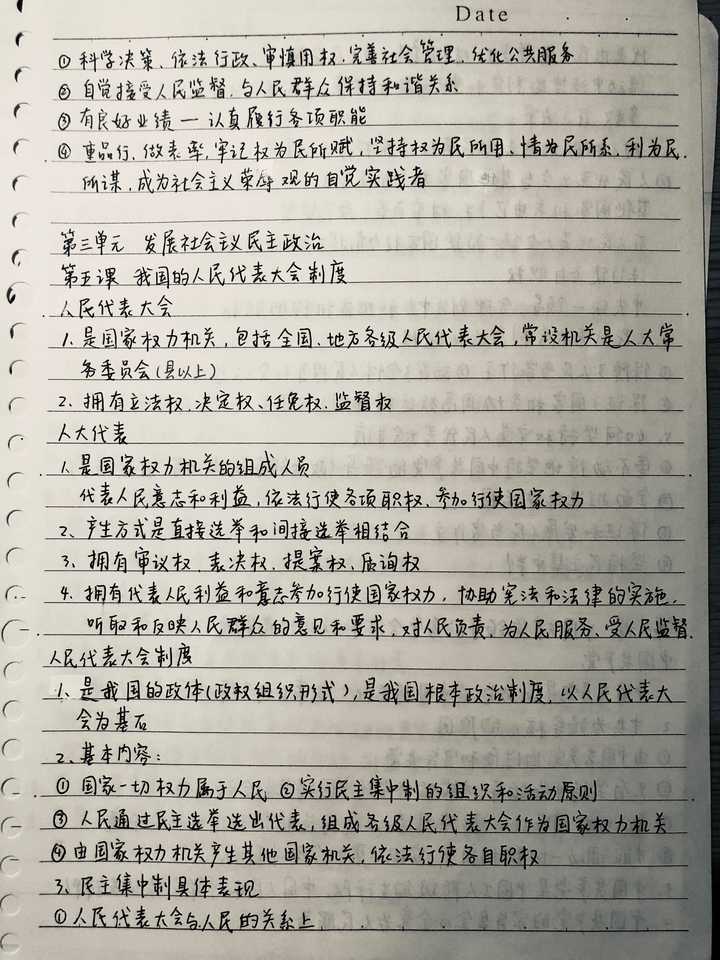 Date
① 科学决策、依法行政、审慎用权、完善社会管理、优化公共服务
② 自觉接受人民监督,与人民群众保持和谐关系
③ 有良好业绩 — 认真履行各项职能
④ 重品行,做表率,牢记权为民所赋,坚持权为民所用、情为民所系、利为民
所谋,成为社会主义荣辱观的自觉实践者
第三单元 发展社会主义民主政治
第五课 我国的人民代表大会制度
人民代表大会
1. 是国家权力机关,包括全国、地方各级人民代表大会,常设机关是人大常
务委员会(县以上)
2. 拥有立法权、决定权、任免权、监督权
人大代表
1. 是国家权力机关的组成人员
代表人民意志和利益,依法行使各项职权、参加行使国家权力
2、产生方式是直接选举和间接选举相结合
3、拥有审议权、表决权、提案权、质询权
4. 拥有代表人民利益和意志参加行使国家权力,协助宪法和法律的实施,
听取和反映人民群众的意见和要求,对人民负责,为人民服务、受人民监督.
人民代表大会制度
1. 是我国的政体(政权组织形式),是我国根本政治制度,以人民代表大
会为基石
2、基本内容:
① 国家一切权力属于人民 ②实行民主集中制的组织和活动原则
③ 人民通过民主选举选出代表,组成各级人民代表大会作为国家权力机关
④ 由国家权力机关产生其他国家机关,依法行使各自职权
3、民主集中制具体表现
①人民代表大会与人民的关系上